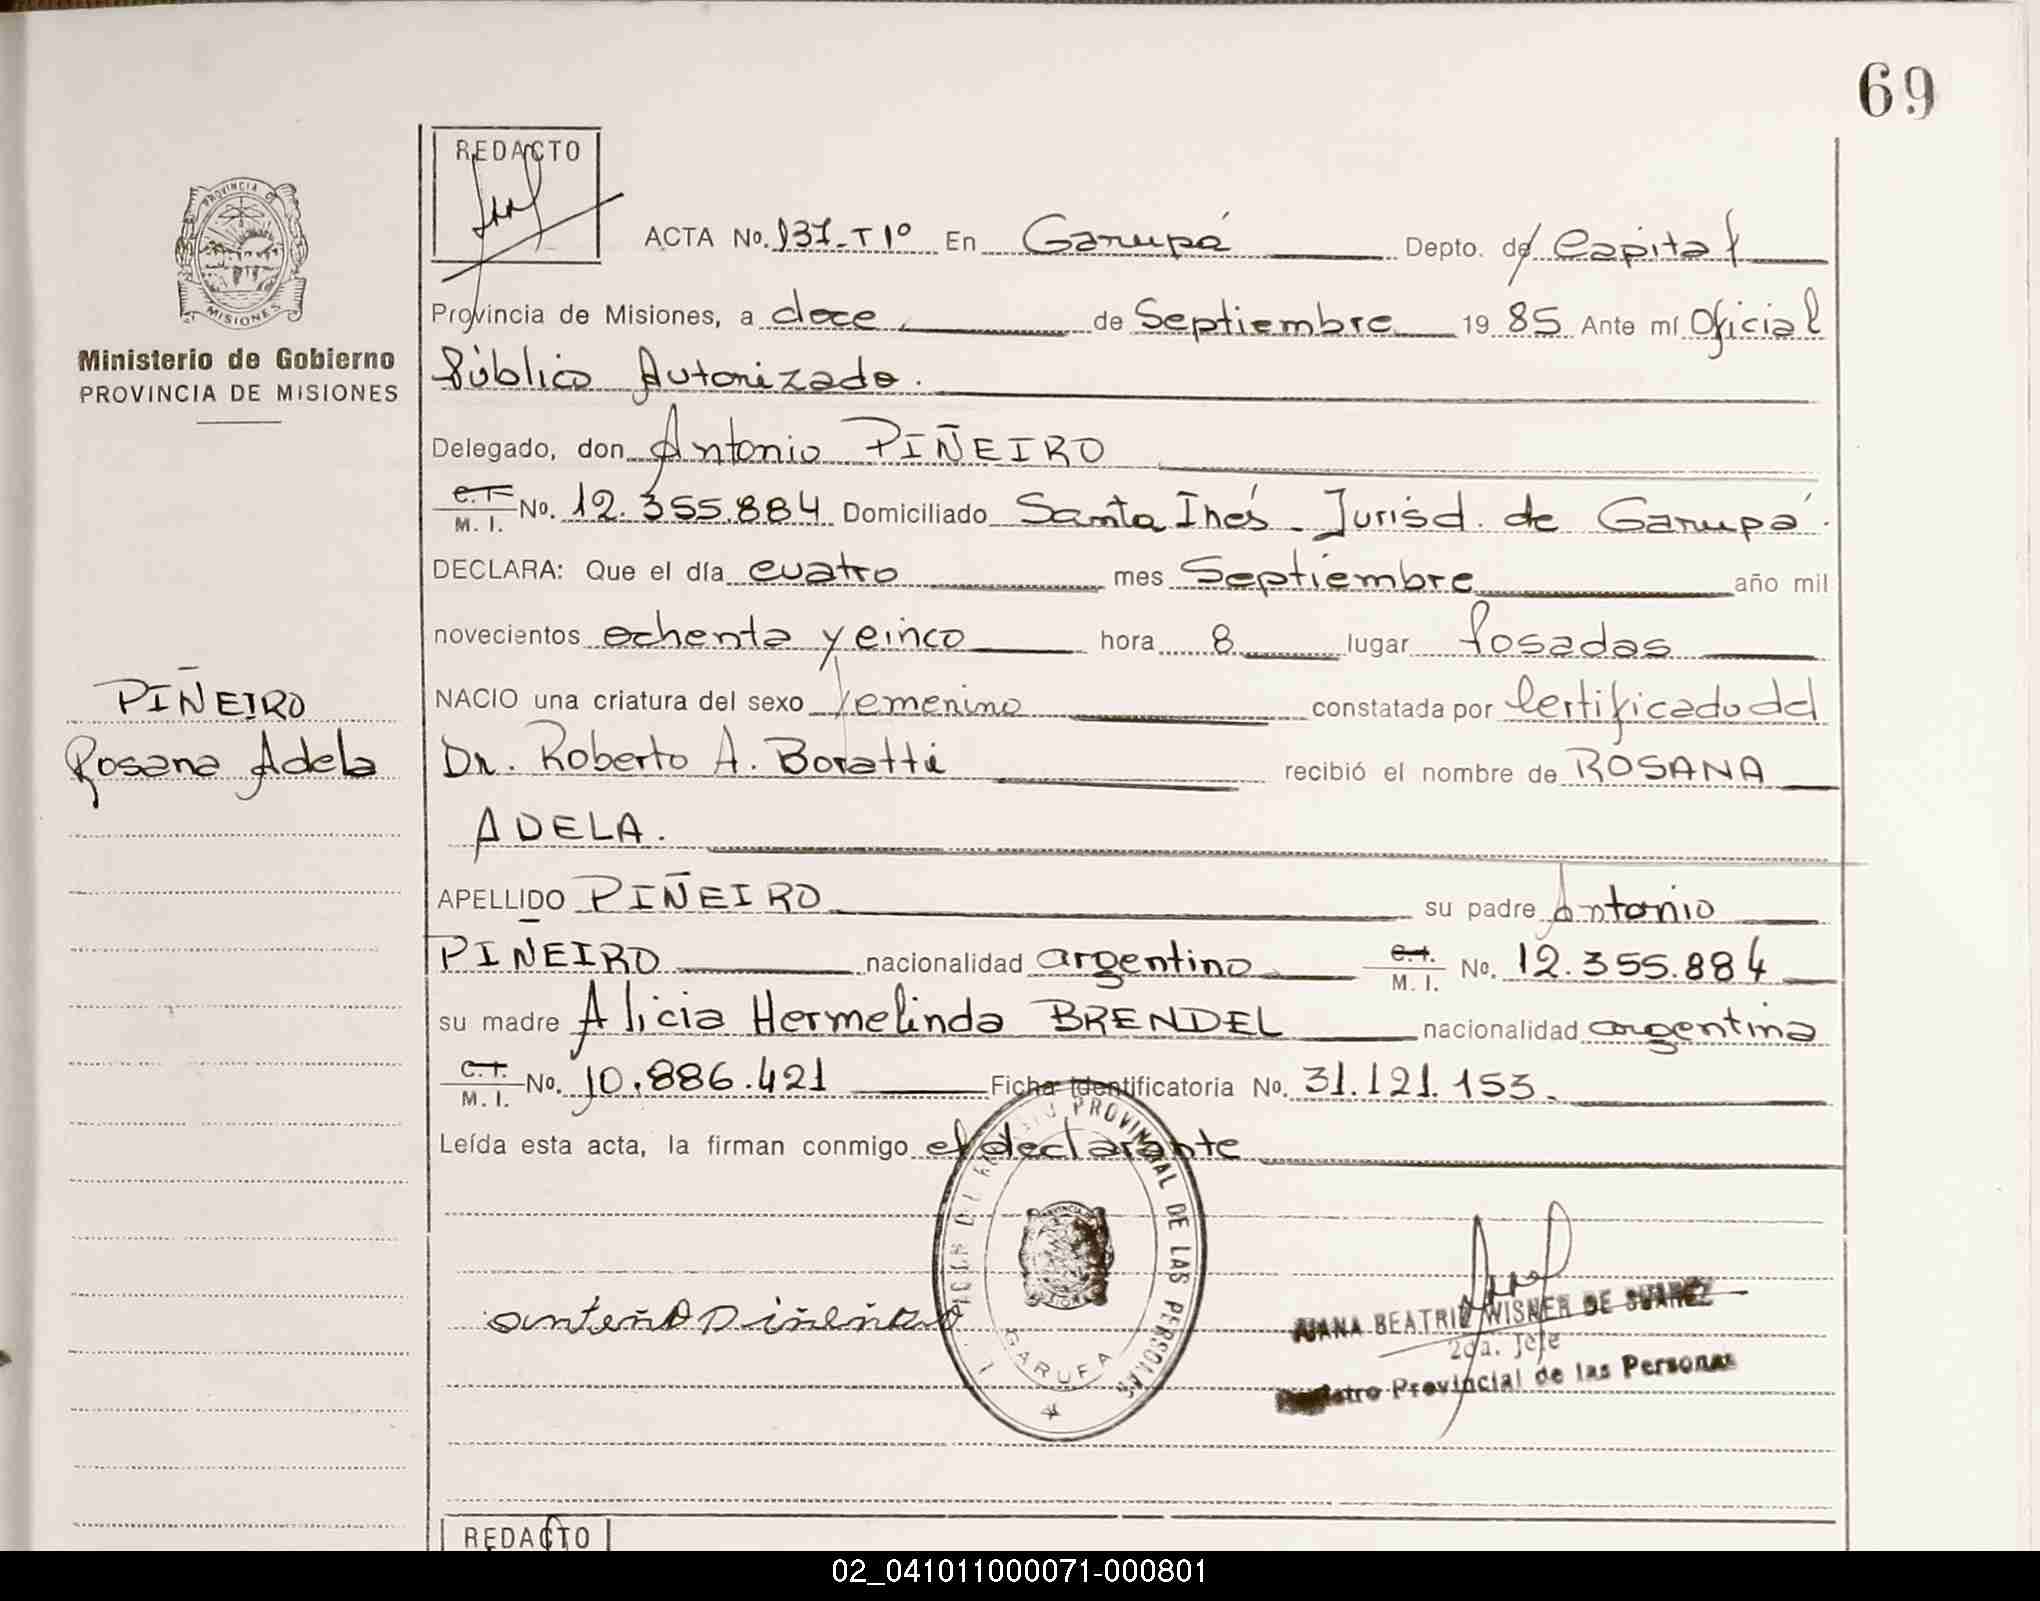 69
REDACTO
PROVINCIA DE
MISIONES
Ministerio de Gobierno
PROVINCIA DE MISIONES
ACTA No. 137-T1º En Garupá Depto. de Capital
Provincia de Misiones, a doce de Septiembre 19 85 Ante mí Oficial
Público Autorizado.
Delegado, don Antonio PIÑEIRO
C.I. M. I. No. 12.355.884 Domiciliado Santa Inés - Jurisd. de Garupá.
DECLARA: Que el día cuatro mes Septiembre año mil
novecientos ochenta y cinco hora 8 lugar Posadas
NACIO una criatura del sexo femenino constatada por Certificado del
Dr. Roberto A. Boratti recibió el nombre de ROSANA
ADELA.
PIÑEIRO
Rosana Adela
APELLIDO PIÑEIRO su padre Antonio
PIÑEIRO nacionalidad argentino C.I. M. I. No. 12.355.884
su madre Alicia Hermelinda BRENDEL nacionalidad argentina
C.I. M. I. No. 10.886.421 Ficha Identificatoria No. 31.121.153.
Leída esta acta, la firman conmigo el declarante
PROVINCIAL DE LAS PERSONAS
GARUPA
JUANA BEATRIZ WISNER DE SUAREZ
2da. Jefe
Registro Provincial de las Personas
REDACTO
02_041011000071-000801